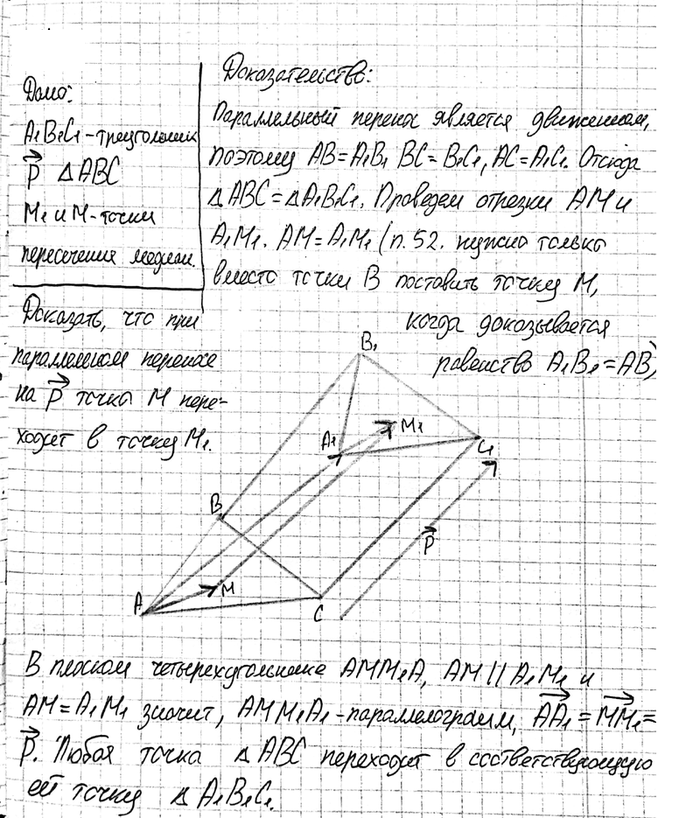 Дано:
A₁B₁C₁-треугольник
p⃗ △ABC
M₁ и M-точки
пересечения медиан.
Доказать, что при
параллельном переносе
на p⃗ точка M пере-
ходит в точку M₁.
Доказательство:
Параллельный перенос является движением,
поэтому AB=A₁B₁ BC=B₁C₁, AC=A₁C₁. Отсюда
△ABC=△A₁B₁C₁. Проведем отрезки AM и
A₁M₁. AM=A₁M₁ (п.52. нужно только
вместо точки B поставить точку M,
когда доказывается
равенство A₁B₁=AB)
B₁
M₁
A₁
C₁
B
p⃗
M
A
C
В плоском четырехугольнике AMM₁A, AM||A₁M₁ и
AM=A₁M₁ значит, AMM₁A₁-параллелограмм, AA₁⃗=MM₁⃗=
p⃗. Любая точка △ABC переходит в соответствующую
ей точку △A₁B₁C₁.